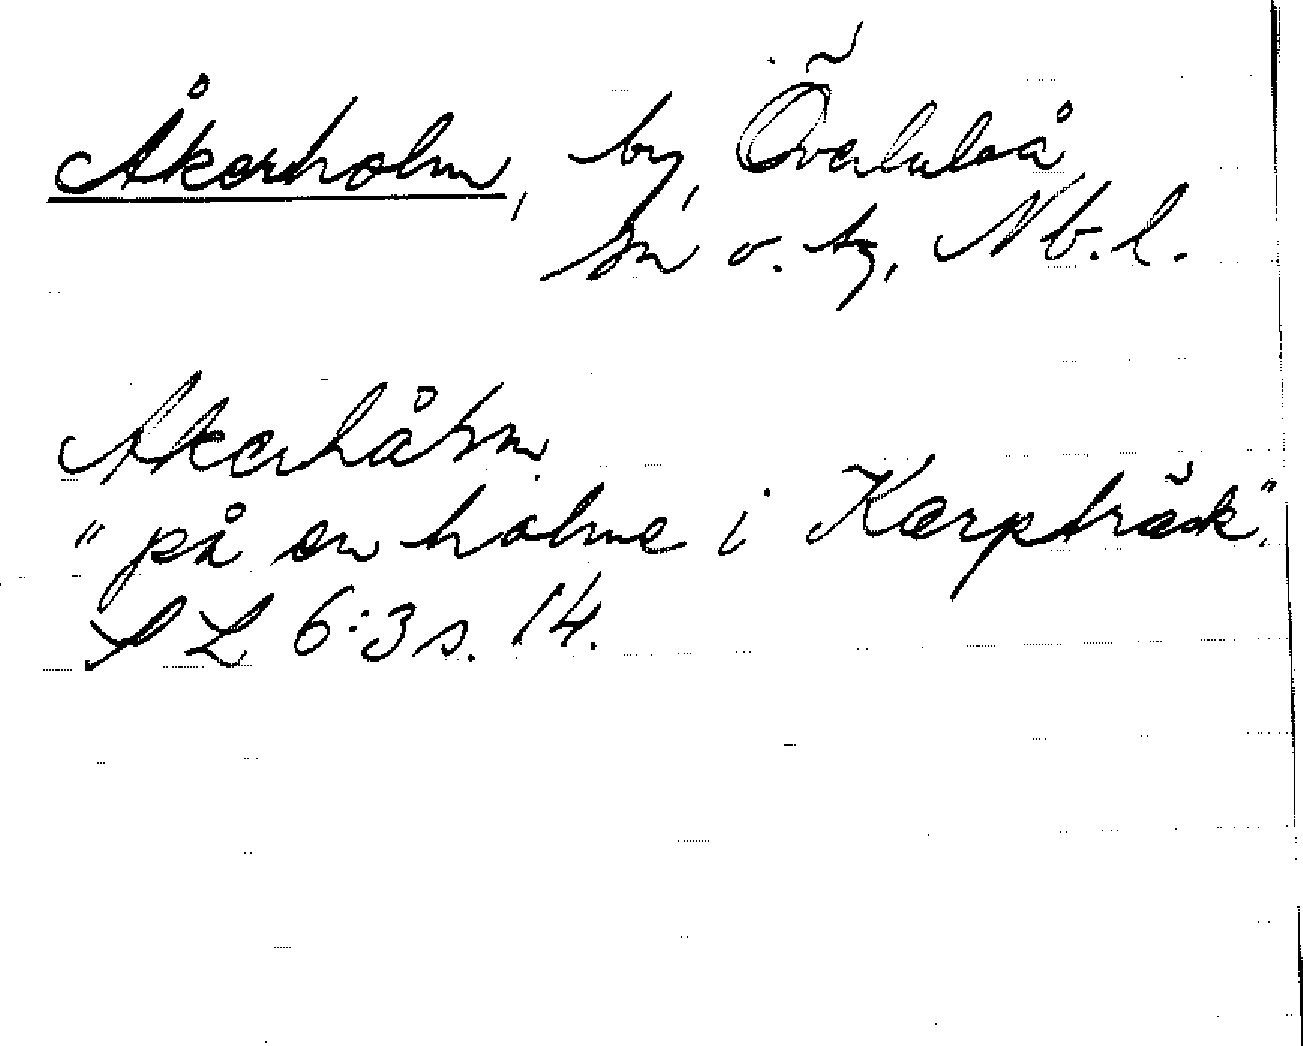 Åkerholm, by, Överluleå
sn o. tg, Nb. l.
Akerhåhn
"på en holme i Karpträsk".
SL 6:3 s. 14.